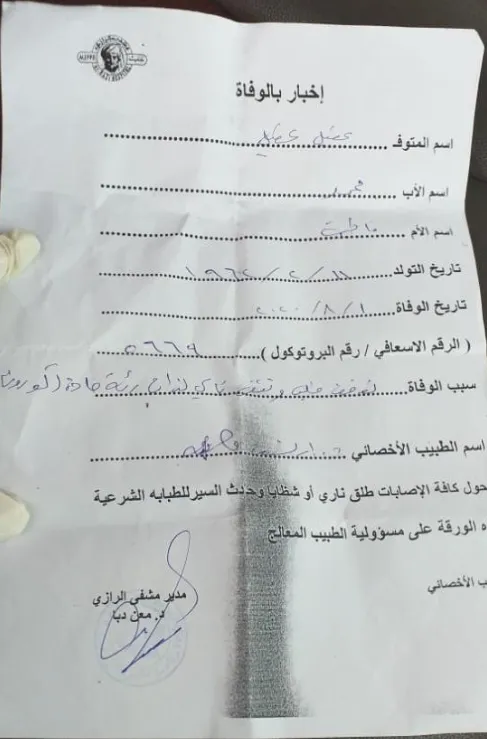 AL-RAZI HOSPITAL
إخبار بالوفاة
اسم المتوفـ
اسم الأب محمد
اسم الأم فاطمة
تاريخ التولد ١٩٦٢/٢/١١
تاريخ الوفاة ٢٠٢٠/٨/١
( الرقم الاسعافي / رقم البروتوكول ) ٥٦٦٩
سبب الوفاة توقف قلب وتنفس رئة حادة (كورونا
اسم الطبيب الأخصائي د.
حول كافة الإصابات طلق ناري أو شظايا وحدث السير للطبابه الشرعية
ه الورقة على مسؤولية الطبيب المعالج
ب الأخصائي
مدير مشفى الرازي
د. معن دبا